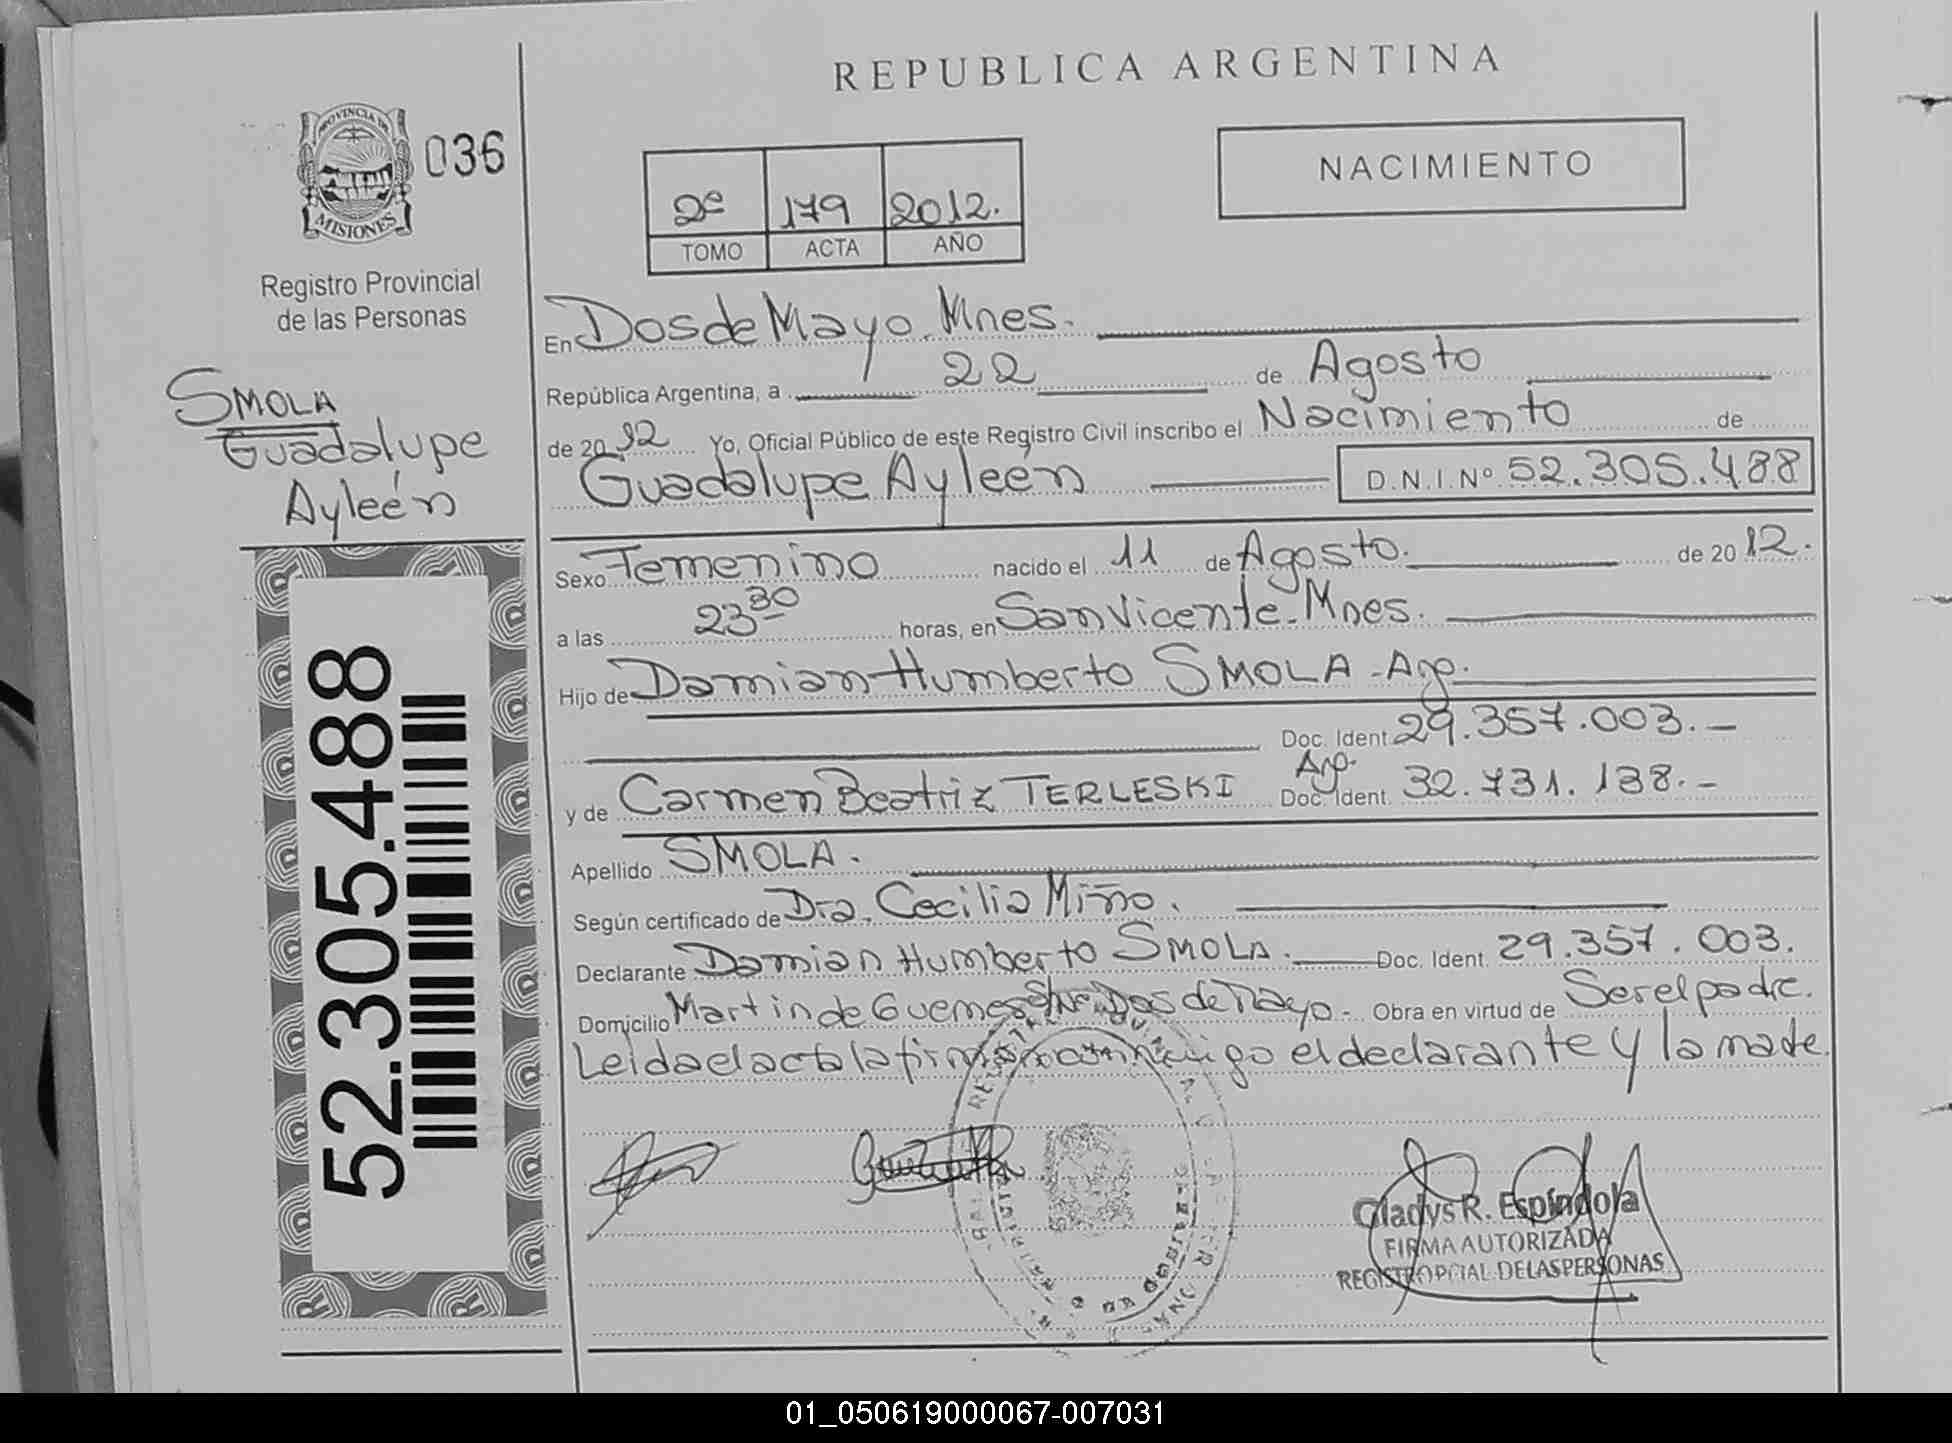 REPUBLICA ARGENTINA
PROVINCIA DE
MISIONES
036
Registro Provincial
de las Personas
SMOLA
Guadalupe
Ayleén
52.305.488
2º 179 2012.
TOMO ACTA AÑO
NACIMIENTO
En Dos de Mayo. Mnes.
República Argentina, a 22 de Agosto
de 20 12 Yo, Oficial Público de este Registro Civil inscribo el Nacimiento de
Guadalupe Ayleén D.N.I.Nº 52.305.488
Sexo Femenino nacido el 11 de Agosto. de 20 12.
a las 23 30 horas, en San Vicente-Mnes.
Hijo de Damian Humberto SMOLA - Arg.
Doc. Ident 29.357.003.-
Arg.
y de Carmen Beatriz TERLESKI Doc. Ident. 32.731.138.-
Apellido SMOLA.
Según certificado de Dra. Cecilia Miño.
Declarante Damian Humberto SMOLA. Doc. Ident. 29.357.003.
Domicilio Martin de Guemes S/Nº Dos de Mayo.- Obra en virtud de Ser el padre.
Leida el acta la firman conmigo el declarante y la madre.
Gladys R. Espíndola
FIRMA AUTORIZADA
REGISTRO PCIAL. DE LAS PERSONAS
01_050619000067-007031